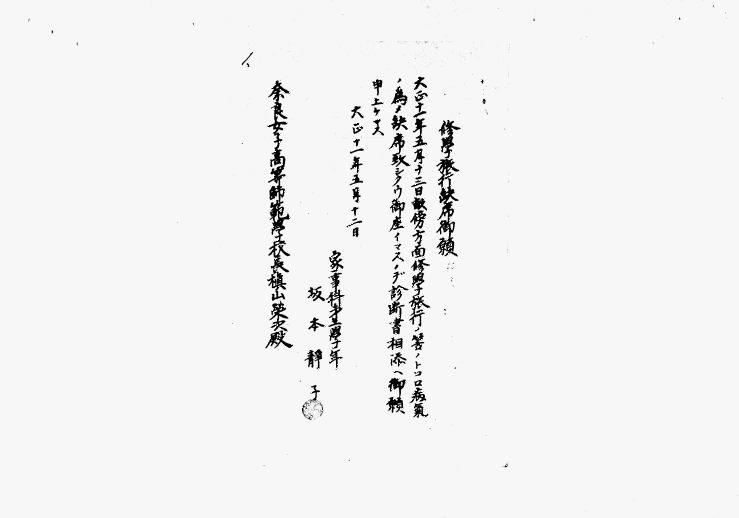 修學旅行缺席御願
大正十一年五月十三日畝傍方面修學旅行ノ筈ノトコロ病氣
ノ為メ缺席致シタウ御座イマスノデ診断書相添ヘ御願
申上ケマス
大正十一年五月十二日
家事科第壹學年
坂本靜子
奈良女子高等師範學校長槇山榮次殿